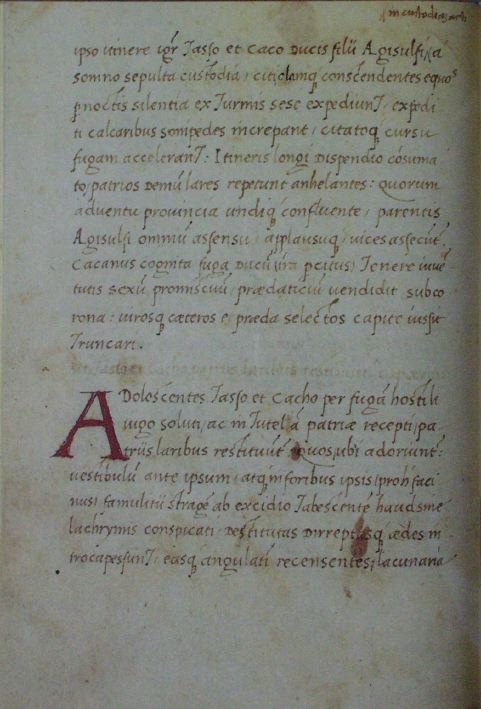 in custodia
ipso itinere igr̄ Tasso et Caco Ducis filii Agisulfi,
somno sepulta custodia, citiq; conscendentes equos
p̱noctis silentia ex Turmis sese expediunT, expedi
ti calcaribus sonipedes increpant, citatoq; cursu
fugam acceleranT: Itineris longi Dispendio cōsuma
to, patrios Demū lares repetunt anhelantes: quorum
adventu provincia undiq; confluente, parentis
Agisulfi omniū assensu, applausuq; vices
Cacanus cognita fuga Ducū, ira Tenere
tutis sexū promiscuū, prædaticiū vendidit sub co
rona: virosq; cæteros e præda selectos capite iussit
Truncari.
ADoloscentes Tasso et Cacho per fugā hostili
iugo soluti, ac in Tutelā patriæ recepti, pa
triis laribus restituūt quos ubi adoriunt:
vestibulū ante ipsum, atq; in foribus ipsis (proh faci
nus) famulitii stragē ab excidio Tabescentē haud sine
lachrymis conspicati, Destitutas Dirreptasq; ædes in
trocapessunT, easq; angulati recensentes, lacunaria